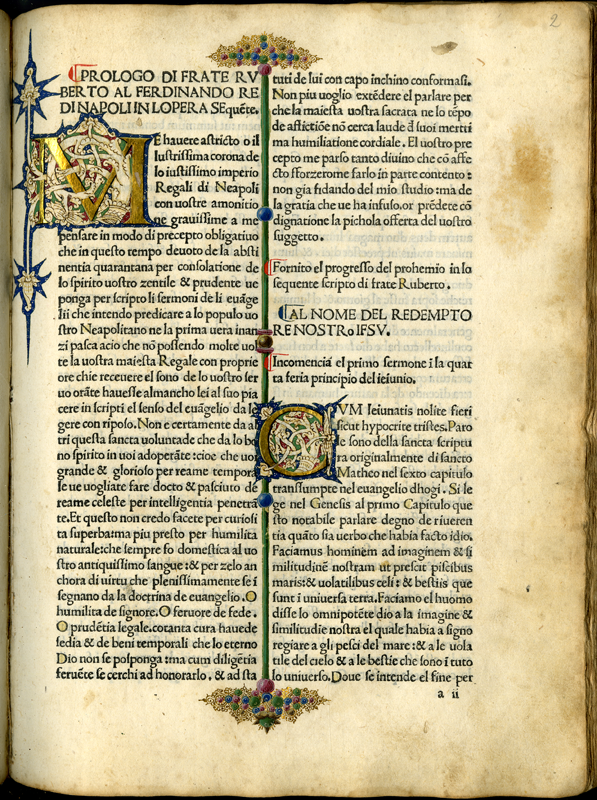 2
PROLOGO DI FRATE RV
BERTO AL FERDINANDO RE
DI NAPOLI IN LOPERA SEquẽte.
ME hauere astricto o il
lustrissima corona de
lo iustissimo imperio
Regali di Neapoli
con uostre amonitio
ne grauissime a me
pensare in modo di precepto obligatiuo
che in questo tempo deuoto de la absti
nentia quarantana per consolatione de
lo spirito uostro zentile & prudente ue
ponga per scripto li sermoni de li euãge
lii che intendo predicare a lo populo uo
stro Neapolitano ne la prima uera inan
zi pasca acio che nõ possendo molte uol
te la uostra maiesta Regale con proprie
orechie receuere el sono de lo uostro ser
uo orãte hauesse almancho lei al suo pia
cere in scripti el senso del euãgelio da le
gere con riposo. Non e certamente da al
tri questa sancta uoluntade che da lo bo
no spirito in uoi adoperãte: cioe che uoi
grande & glorioso per reame tempora
le ue uogliate fare docto & pasciuto de
reame celeste per intelligentia penetrã
te. Et questo non credo facete per curiosi
ta superba: ma piu presto per humilita
naturale: che sempre fo domestica al uo
stro antiquissimo sangue: & per zelo an
chora di uirtu che plenissimamente se ĩ
segnano da la doctrina de euangelio. O
humilita de signore. O feruore de fede.
O prudẽtia legale. cotanta cura hauede
sedia & de beni temporali che lo eterno
Dio non se posponga: ma cum diligẽtia
feruẽte se cerchi ad honorarlo, & ad sta
tuti de lui con capo inchino conformasi.
Non piu uoglio extẽdere el parlare per
che la maiesta uostra sacrata ne lo tẽpo
de afflictiõe nõ cerca laude đ suoi meriti
ma humiliatione cordiale. El uostro pre
cepto me parso tanto diuino che cõ affe
cto sforzerome farlo in parte contento:
non gia fidando del mio studio: ma de
la gratia che ue ha infuso. or prẽdete cõ
dignatione la pichola offerta del uostro
suggetto.
Fornito el progresso del prohemio in lo
sequente scripto di frate Ruberto.
AL NOME DEL REDEMPTO
RE NOSTRO IESV.
Incomencia el primo sermone ĩ la quar
ta feria principio del ieiunio.
CVM Ieiunatis nolite fieri
sicut hypocrite tristes. Paro
le sono della sancta scriptu
ra originalmente di sancto
Matheo nel sexto capitulo
transumpte nel euangelio dhogi. Si le
ge nel Genesis al primo Capitulo que
sto notabile parlare degno de riueren
tia quãto sia uerbo che habia facto idio.
Faciamus hominem ad imaginem & si
militudinẽ nostram ut presit piscibus
maris: & uolatilibus celi: & bestiis que
sunt ĩ uniuersa terra. Faciamo el huomo
disse lo omnipotẽte dio a la imagine &
similitudĩe nostra el quale habia a signo
regiare a gli pesci del mare: & a le uola
tile del cielo & a le bestie che sono ĩ tuto
lo uniuerso. Doue se intende el fine per
a ii